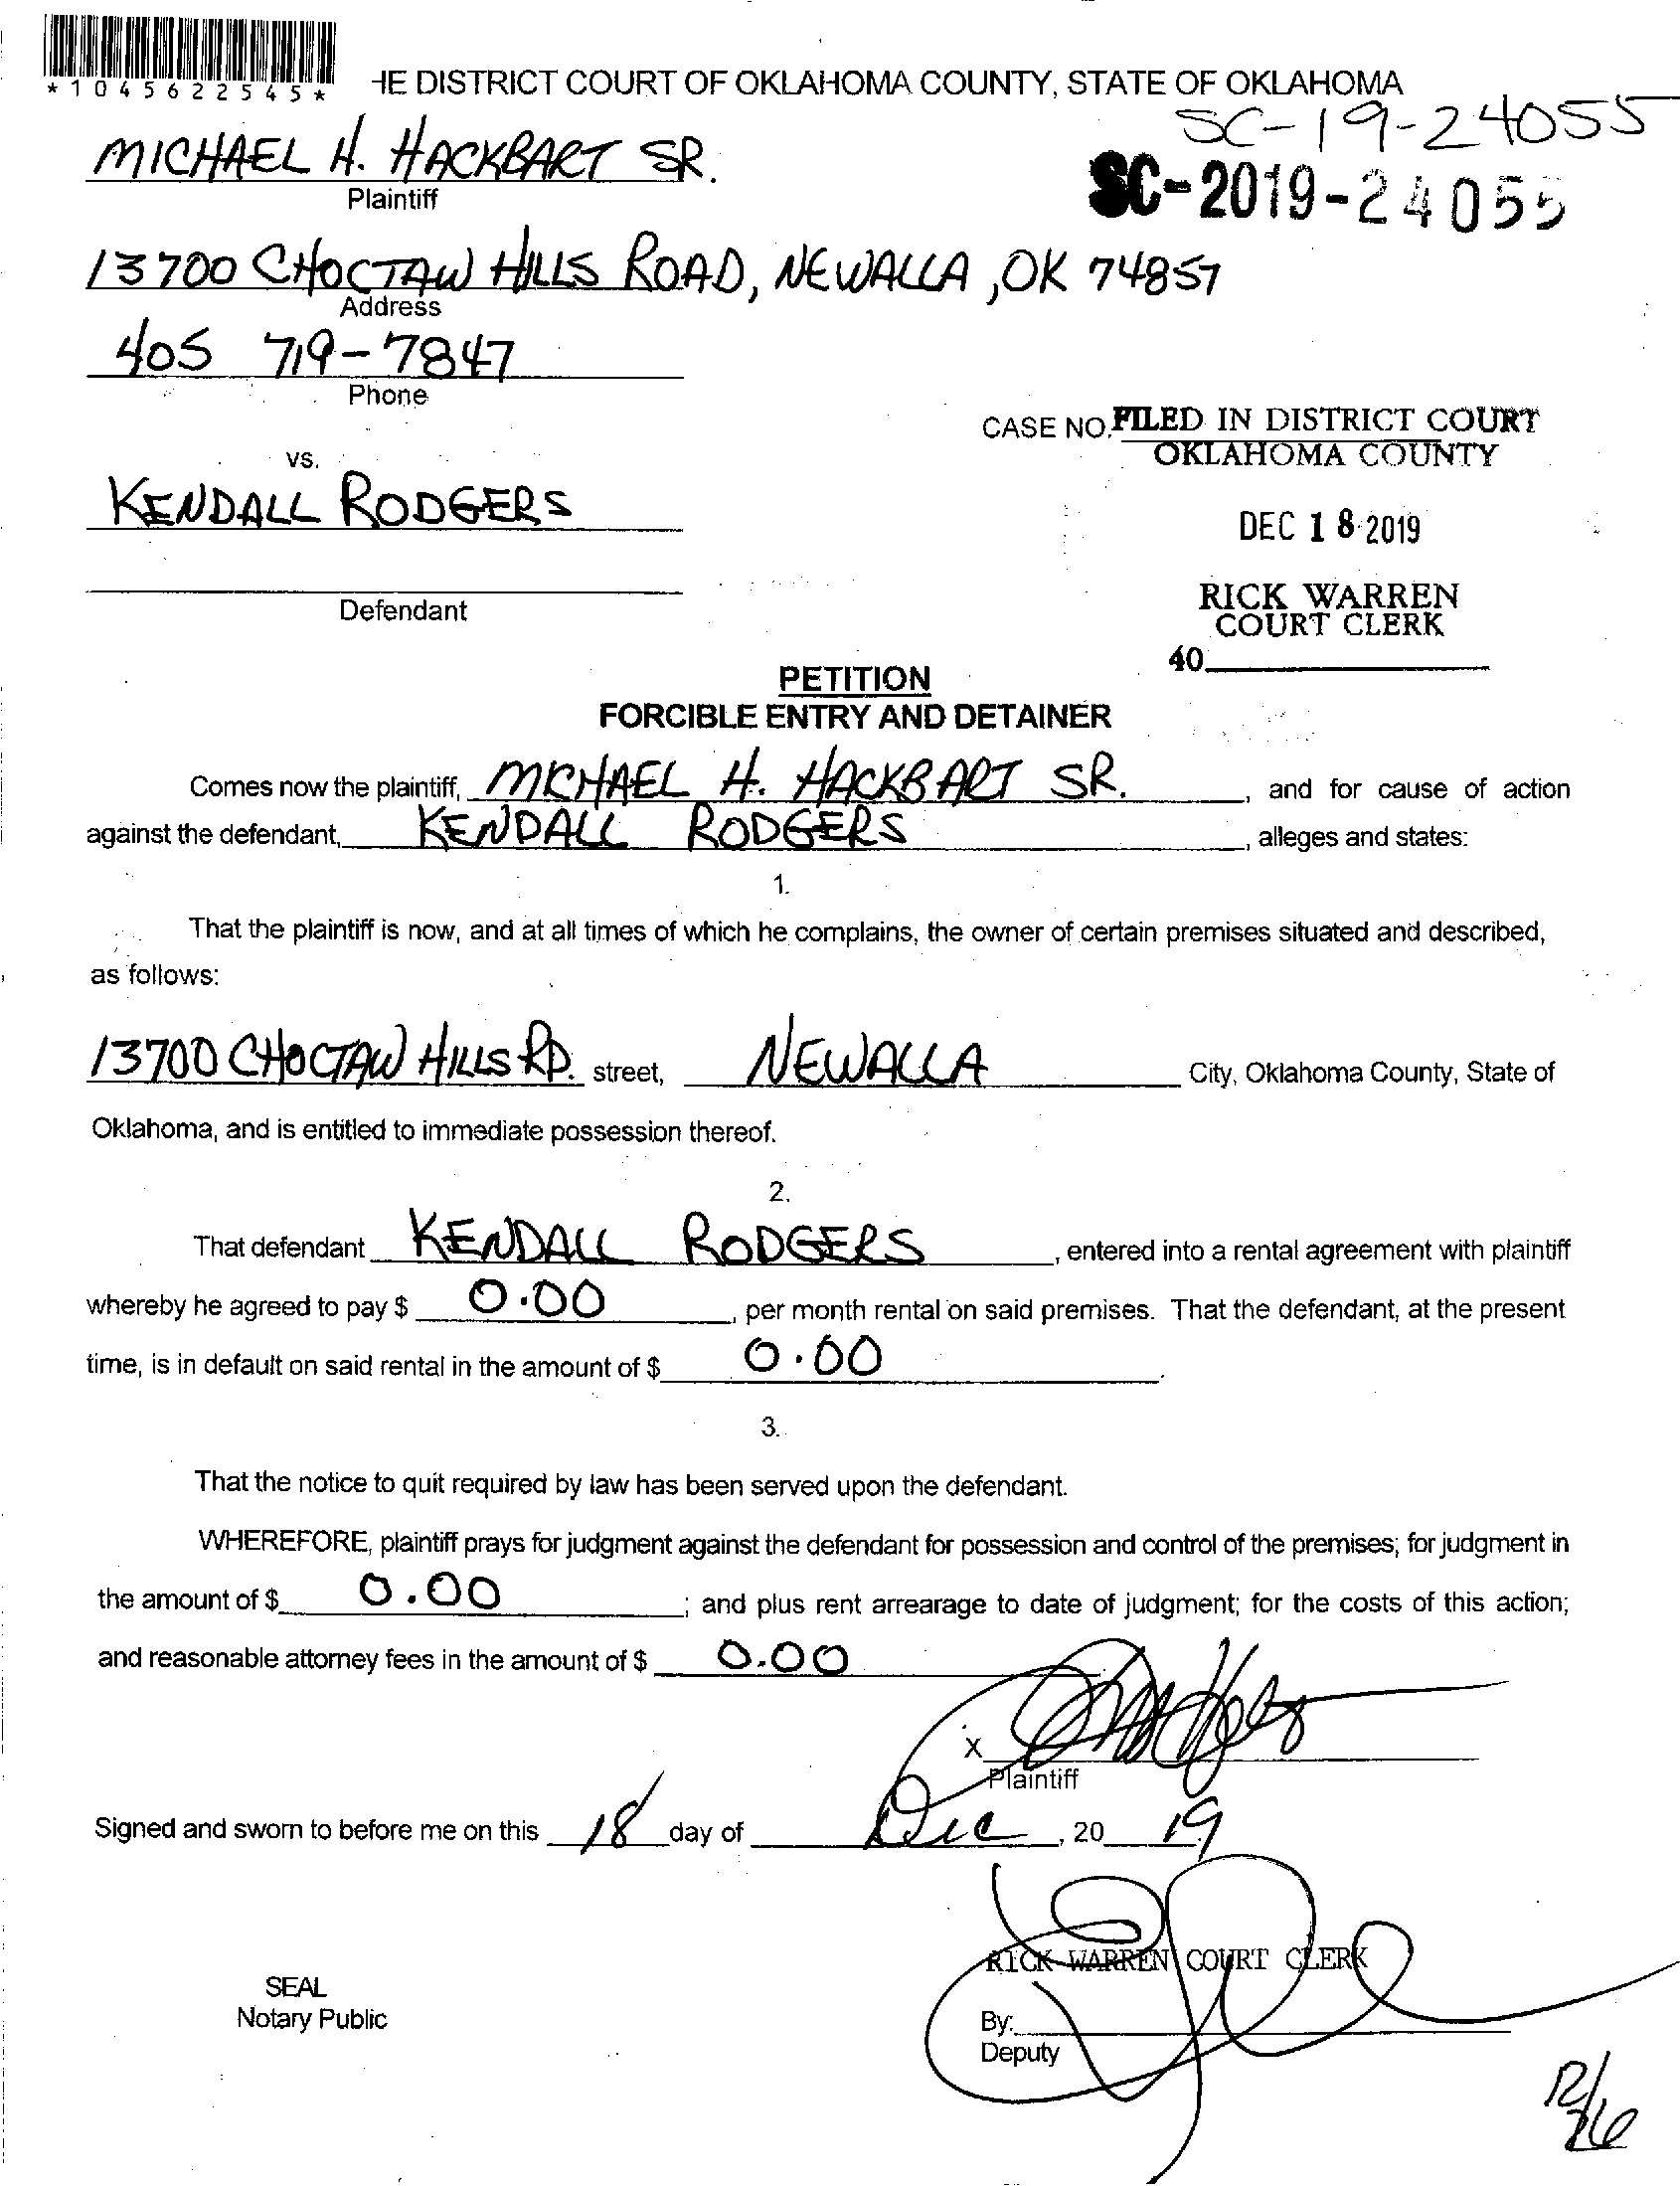 *1045622545*
HE DISTRICT COURT OF OKLAHOMA COUNTY, STATE OF OKLAHOMA
SC-19-24055
MICHAEL H. HACKBART SR.
Plaintiff
SC-2019-24055
13700 CHOCTAW HILLS ROAD, NEWALLA, OK 74857
Address
405 719-7847
Phone
CASE NO. FILED IN DISTRICT COURT
OKLAHOMA COUNTY
vs.
KENDALL RODGERS
DEC 18 2019
Defendant
RICK WARREN
COURT CLERK
40
PETITION
FORCIBLE ENTRY AND DETAINER
Comes now the plaintiff, MICHAEL H. HACKBART SR., and for cause of action
against the defendant, KENDALL RODGERS, alleges and states:
1.
That the plaintiff is now, and at all times of which he complains, the owner of certain premises situated and described,
as follows:
13700 CHOCTAW HILLS RD. street, NEWALLA City, Oklahoma County, State of
Oklahoma, and is entitled to immediate possession thereof.
2.
That defendant KENDALL RODGERS, entered into a rental agreement with plaintiff
whereby he agreed to pay $ 0.00, per month rental on said premises. That the defendant, at the present
time, is in default on said rental in the amount of $ 0.00.
3.
That the notice to quit required by law has been served upon the defendant.
WHEREFORE, plaintiff prays for judgment against the defendant for possession and control of the premises; for judgment in
the amount of $ 0.00; and plus rent arrearage to date of judgment; for the costs of this action;
and reasonable attorney fees in the amount of $ 0.00
X
Plaintiff
Signed and sworn to before me on this 18 day of Dec, 20 19
RICK WARREN COURT CLERK
SEAL
Notary Public
By:
Deputy
12/26